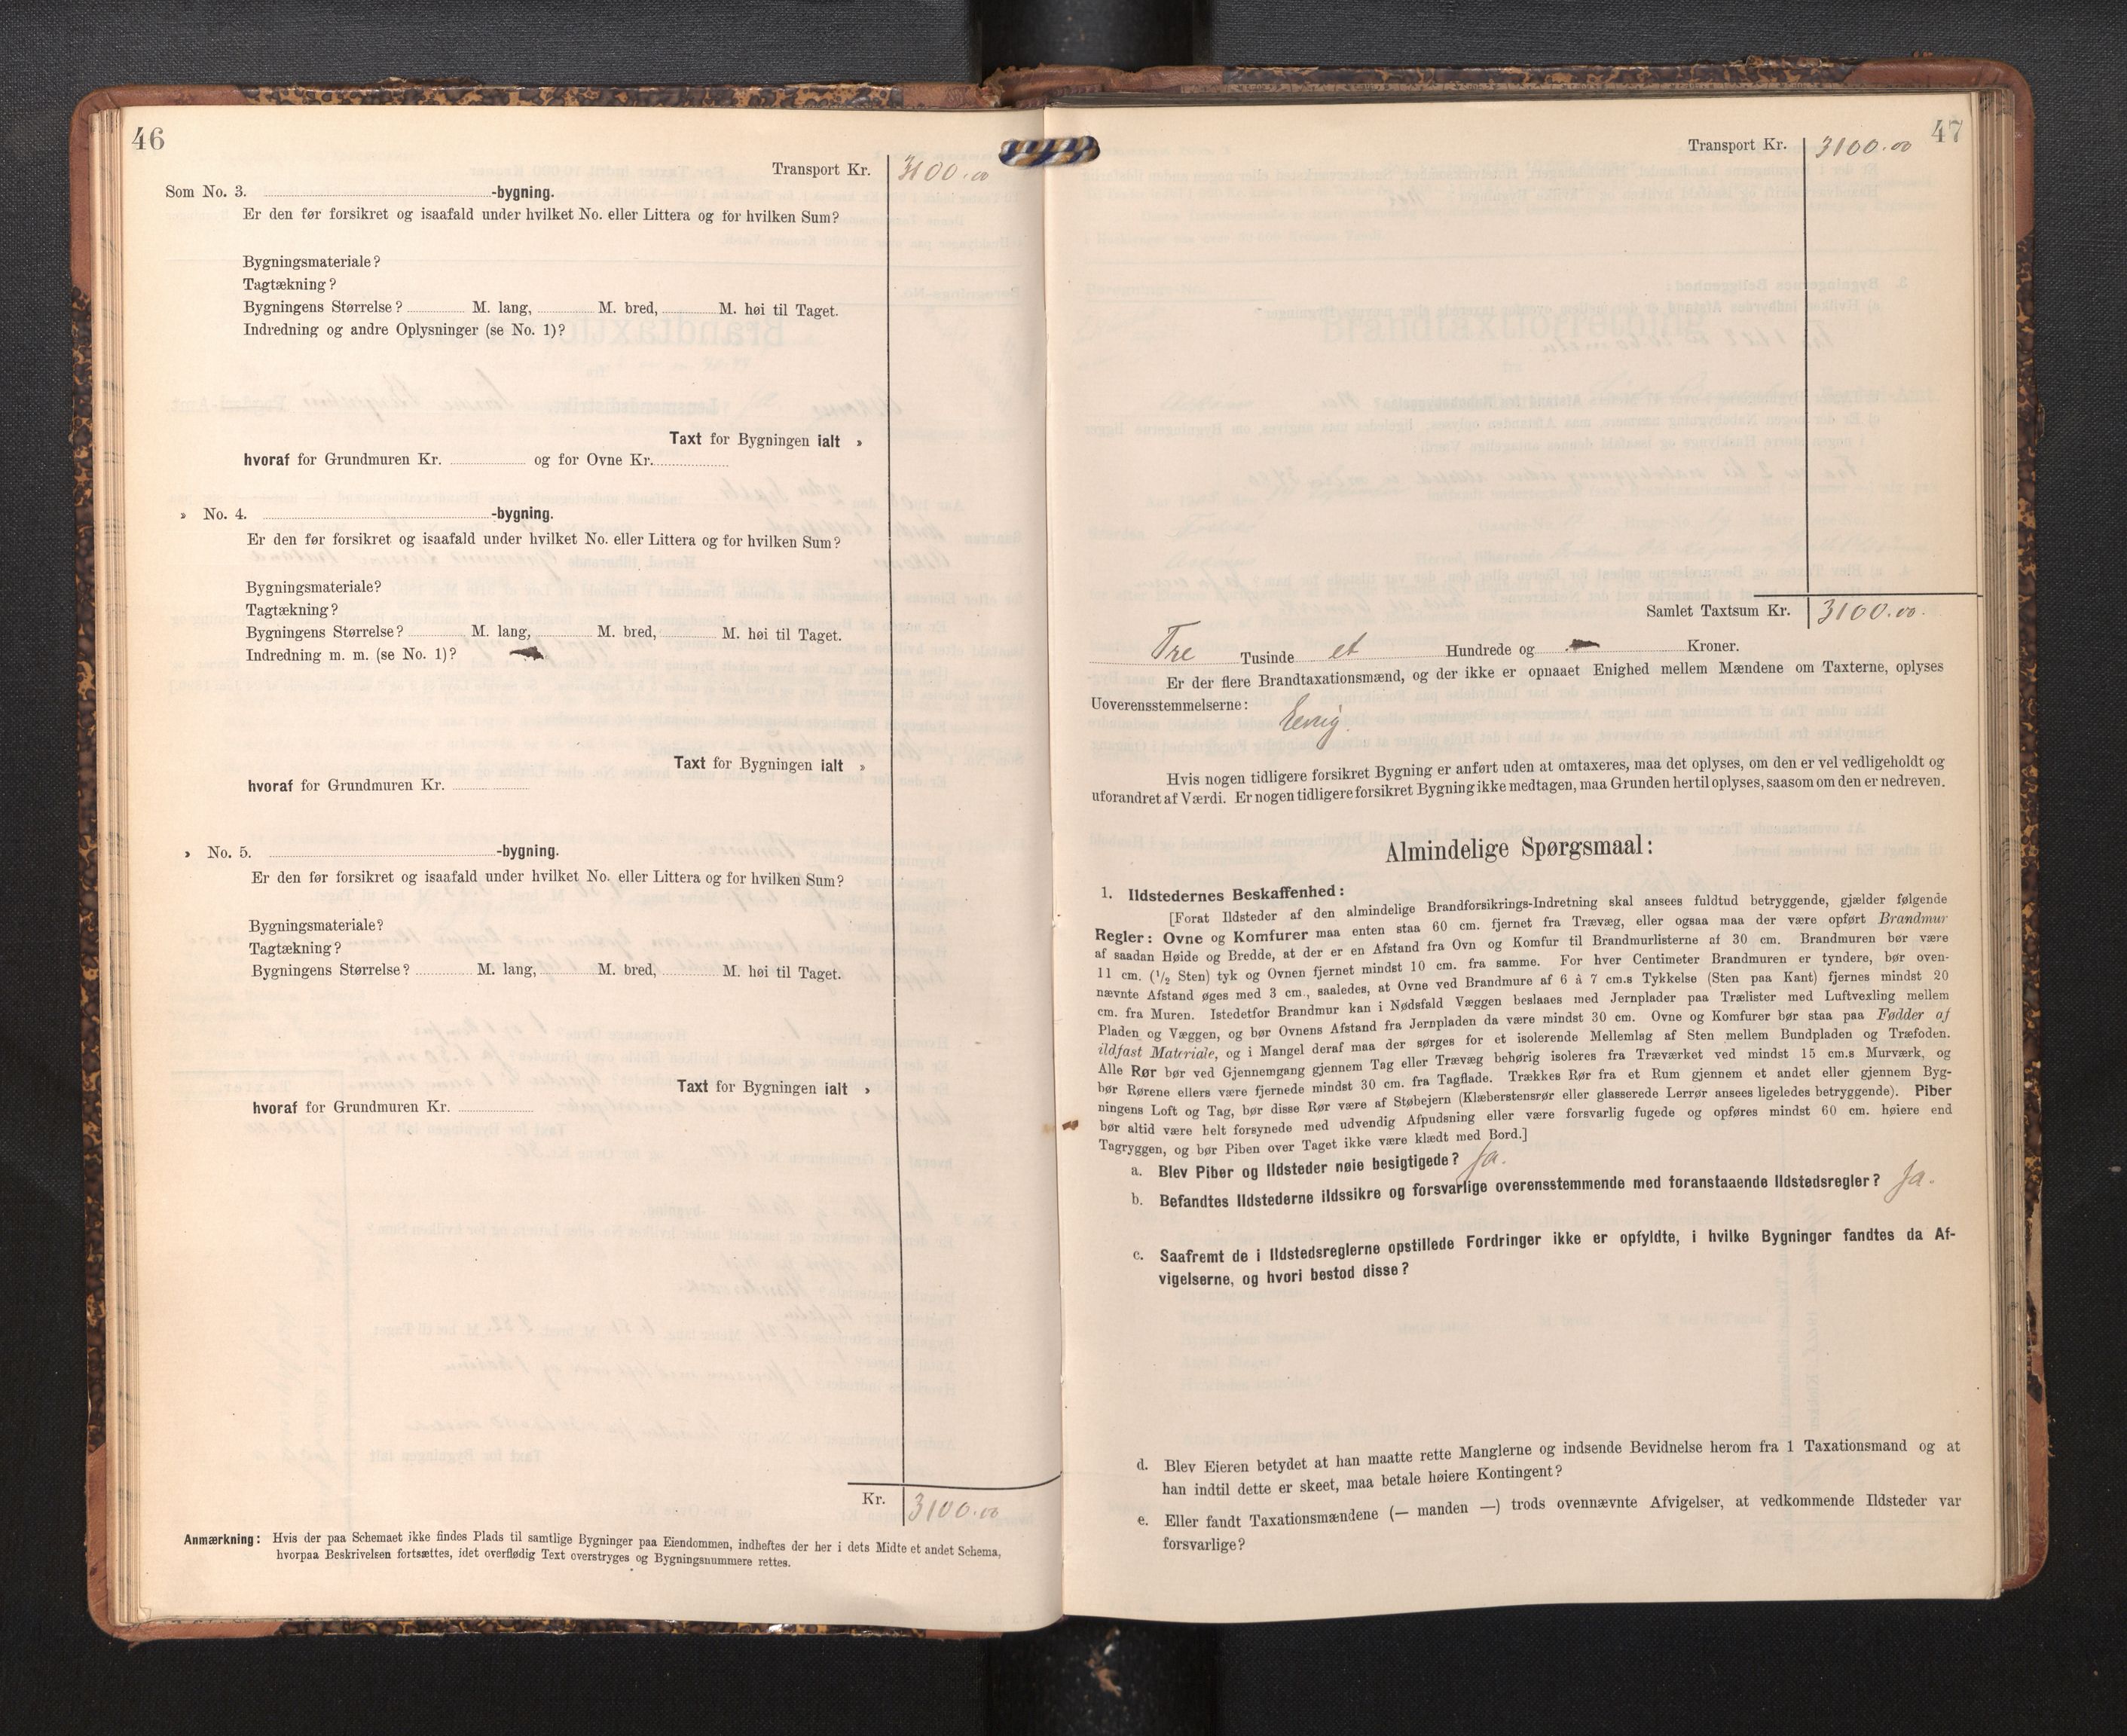 46
Transport Kr. 3100.00
Som No. 3. -bygning.
Er den før forsikret og isaafald under hvilket No. eller Littera og for hvilken Sum?
Bygningsmateriale?
Tagtækning?
Bygningens Størrelse? M. lang, M. bred, M. høi til Taget.
Indredning og andre Oplysninger (se No. 1)?
Taxt for Bygningen ialt »
hvoraf for Grundmuren Kr. og for Ovne Kr.
» No. 4. -bygning.
Er den før forsikret og isaafald under hvilket No. eller Littera og for hvilken Sum?
Bygningsmateriale?
Tagtækning?
Bygningens Størrelse? M. lang, M. bred, M. høi til Taget.
Indredning m. m. (se No. 1)?
Taxt for Bygningen ialt »
hvoraf for Grundmuren Kr.
» No. 5. -bygning.
Er den før forsikret og isaafald under hvilket No. eller Littera og for hvilken Sum?
Bygningsmateriale?
Tagtækning?
Bygningens Størrelse? M. lang, M. bred, M. høi til Taget.
Taxt for Bygningen ialt »
hvoraf for Grundmuren Kr.
Kr. 3100.00
Anmærkning: Hvis der paa Schemaet ikke findes Plads til samtlige Bygninger paa Eiendommen, indheftes der her i dets Midte et andet Schema,
hvorpaa Beskrivelsen fortsættes, idet overflødig Text overstryges og Bygningsnummere rettes.
47
Transport Kr. 3100.00
Samlet Taxtsum Kr. 3100.00.
Tre Tusinde et Hundrede og Kroner.
Er der flere Brandtaxationsmænd, og der ikke er opnaaet Enighed mellem Mændene om Taxterne, oplyses
Uoverensstemmelserne:
Enig.
Hvis nogen tidligere forsikret Bygning er anført uden at omtaxeres, maa det oplyses, om den er vel vedligeholdt og
uforandret af Værdi. Er nogen tidligere forsikret Bygning ikke medtagen, maa Grunden hertil oplyses, saasom om den er nedreven.
Almindelige Spørgsmaal:
1. Ildstedernes Beskaffenhed:
[Forat Ildsteder af den almindelige Brandforsikrings-Indretning skal ansees fuldtud betryggende, gjælder følgende
Regler: Ovne og Komfurer maa enten staa 60 cm. fjernet fra Trævæg, eller ogsaa maa der være opført Brandmur
af saadan Høide og Bredde, at der er en Afstand fra Ovn og Komfur til Brandmurlisterne af 30 cm. Brandmuren bør være
11 cm. (1/2 Sten) tyk og Ovnen fjernet mindst 10 cm. fra samme. For hver Centimeter Brandmuren er tyndere, bør oven-
nævnte Afstand øges med 3 cm., saaledes, at Ovne ved Brandmure af 6 à 7 cm.s Tykkelse (Sten paa Kant) fjernes mindst 20
cm. fra Muren. Istedetfor Brandmur kan i Nødsfald Væggen beslaaes med Jernplader paa Trælister med Luftvexling mellem
Pladen og Væggen, og bør Ovnens Afstand fra Jernpladen da være mindst 30 cm. Ovne og Komfurer bør staa paa Fødder af
ildfast Materiale, og i Mangel deraf maa der sørges for et isolerende Mellemlag af Sten mellem Bundpladen og Træfoden.
Alle Rør bør ved Gjennemgang gjennem Tag eller Trævæg behørig isoleres fra Træværket ved mindst 15 cm.s Murværk, og
bør Rørene ellers være fjernede mindst 30 cm. fra Tagflade. Trækkes Rør fra et Rum gjennem et andet eller gjennem Byg-
ningens Loft og Tag, bør disse Rør være af Støbejern (Klæberstensrør eller glasserede Lerrør ansees ligeledes betryggende). Piber
bør altid være helt forsynede med udvendig Afpudsning eller være forsvarlig fugede og opføres mindst 60 cm. høiere end
Tagryggen, og bør Piben over Taget ikke være klædt med Bord.]
a. Blev Piber og Ildsteder nøie besigtigede? Ja.
b. Befandtes Ildstederne ildssikre og forsvarlige overensstemmende med foranstaaende Ildstedsregler? Ja.
c. Saafremt de i Ildstedsreglerne opstillede Fordringer ikke er opfyldte, i hvilke Bygninger fandtes da Af-
vigelserne, og hvori bestod disse?
d. Blev Eieren betydet at han maatte rette Manglerne og indsende Bevidnelse herom fra 1 Taxationsmand og at
han indtil dette er skeet, maa betale høiere Kontingent?
e. Eller fandt Taxationsmændene (— manden —) trods ovennævnte Afvigelser, at vedkommende Ildsteder var
forsvarlige?